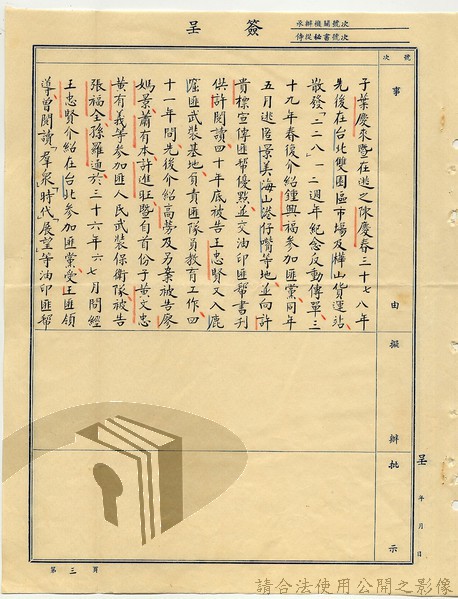 簽呈
承辦機關號次
侍從秘書號次
號次
事由
擬辦
批示
呈 年 月 日
子葉慶來暨在逃之陳慶春三十七八年
先後在台北雙園區市場及樺山貨運站
散發「二二八」一二週年紀念反動傳單三
十九年春後介紹鍾興福參加匪黨同年
五月逃匿景美海山港仔嘴等地並向許
貴標宣傳匪幫優點並交油印匪帮書刊
供許閱讀四十年底被告王忠賢又入鹿
窟匪武裝基地負責匪隊員教育工作四
十一年間先後介紹高勞及另案被告廖
媽景蕭有本許進旺暨自首份子黃文忠
黃有義等參加匪人民武裝保衛隊被告
張福全孫羅通於三十六年六七月間經
王忠賢介紹在台北參加匪黨受王匪領
導曾閱讀「羣众」「時代展望」等油印匪帮
第三頁
請合法使用公開之影像